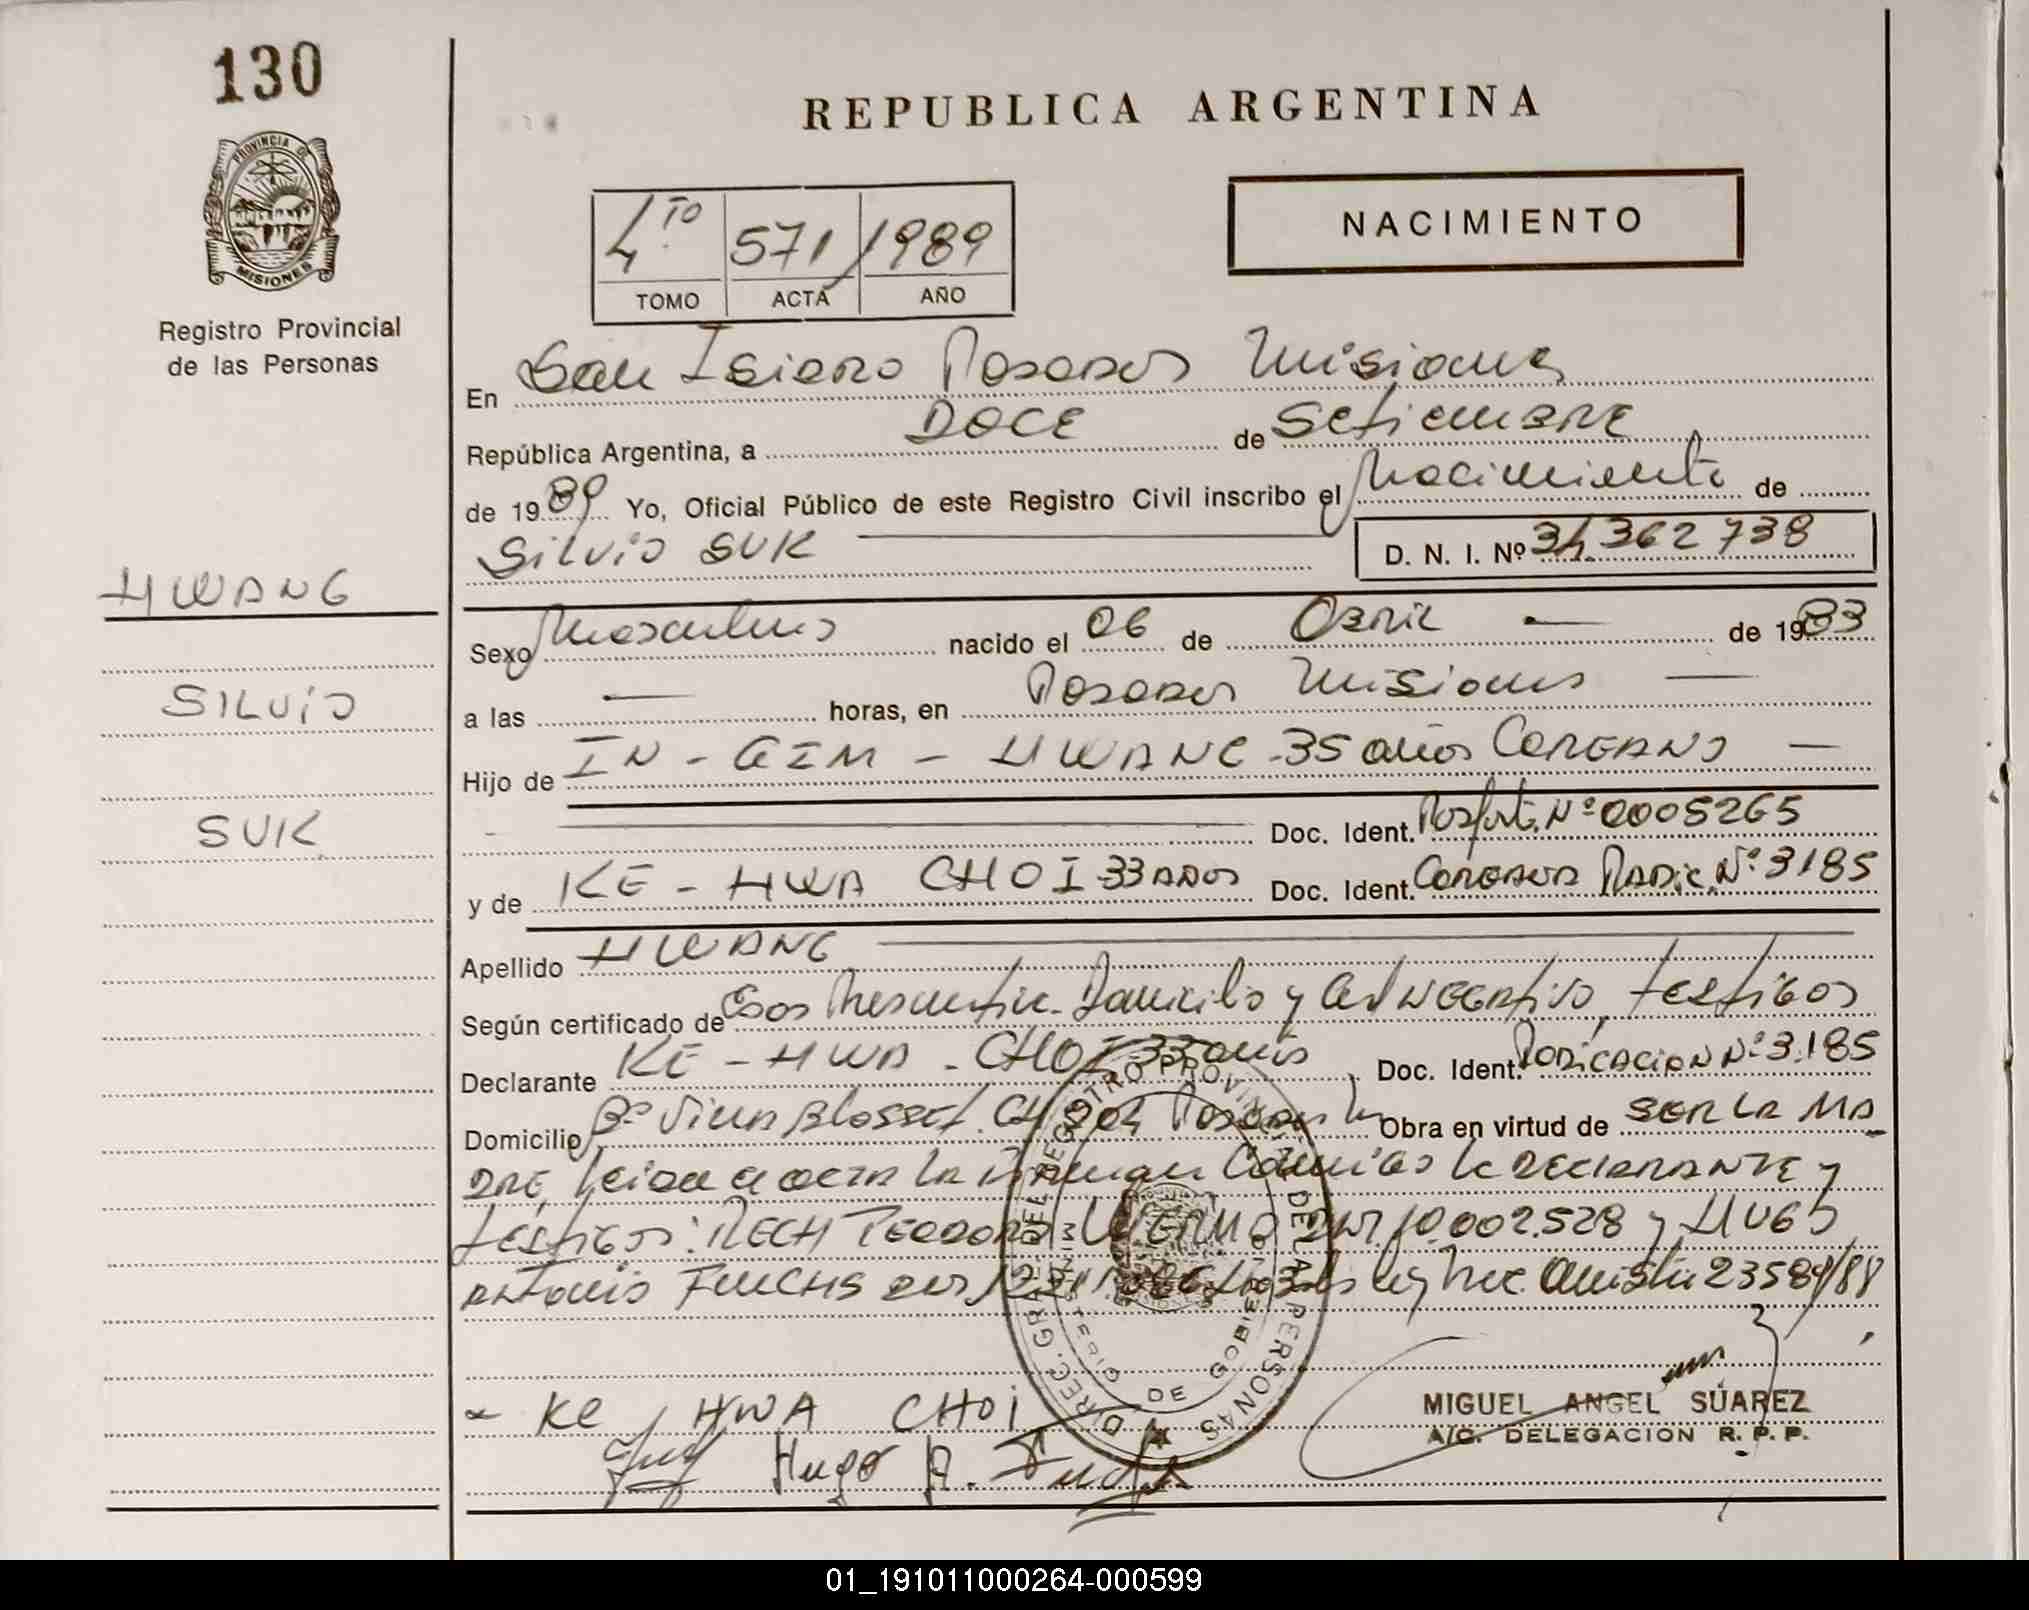 130
PROVINCIA DE
MISIONES
Registro Provincial
de las Personas
HWANG
SILVIO
SUK
REPUBLICA ARGENTINA
NACIMIENTO
4TO 571 1989
TOMO ACTA AÑO
En San Isidro Posadas Misiones
República Argentina, a DOCE de Setiembre
de 1989 Yo, Oficial Público de este Registro Civil inscribo el Nacimiento de
SILVIO SUK D. N. I. Nº 34.362.738
Sexo Masculino nacido el 06 de Abril — de 1983
a las — horas, en Posadas Misiones —
Hijo de IN - GIM - HWANG - 35 años COREANO —
Doc. Ident. Pasaporte Nº 0005265
y de KE - HWA CHOI 33 años Doc. Ident. COREANA RADIC. Nº 3185
Apellido HWANG
Según certificado de Domicilio y NEGATIVO, testigos
Declarante KE - HWA - CHOI 33 años Doc. Ident. RADICACION Nº 3.185
Domicilio Bº Villa Blosset. CH 204 Posadas Obra en virtud de SER LA MA
DRE, leida el acta la firman conmigo la DECLARANTE y
testigos: RECH TEODORO DNI. 10.002.528 y HUGO
ANTONIO FUCHS DNI 23589/88
KE HWA CHOI
Hugo A. Fuchs
MIGUEL ANGEL SÚAREZ
A/C. DELEGACION R. P. P.
DIREC. GRAL. DEL REGISTRO PROVINCIAL DE LAS PERSONAS
DE GOBIERNO
01_191011000264-000599